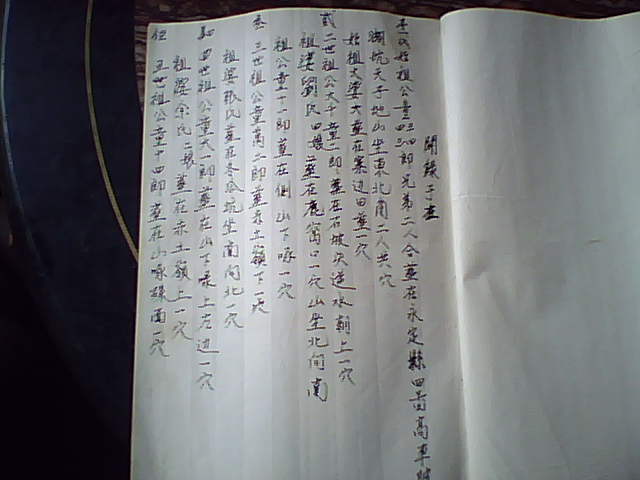 開錢于左
壹 一世始祖公童四三四郎兄弟二人合葬在永定縣四畄高車
湖坑天子地山坐東北角二人共穴
始祖大婆大葬在寨边田葬一穴
貳 二世祖公大十童二郎葬在石坡头逆水朝上一穴
祖婆劉氏四娘葬在鹿窩口一穴山坐北向南
祖公童十一郎葬在側山下 一穴
叁 三世祖公童萬二郎葬赤土嶺下一穴
祖婆張氏葬在冬瓜坑坐南向北一穴
四世祖公童大一郎葬在山下 上左边一穴
祖婆余氏二娘葬在赤土嶺上一穴
伍 五世祖公童十四郎葬在山 面一穴